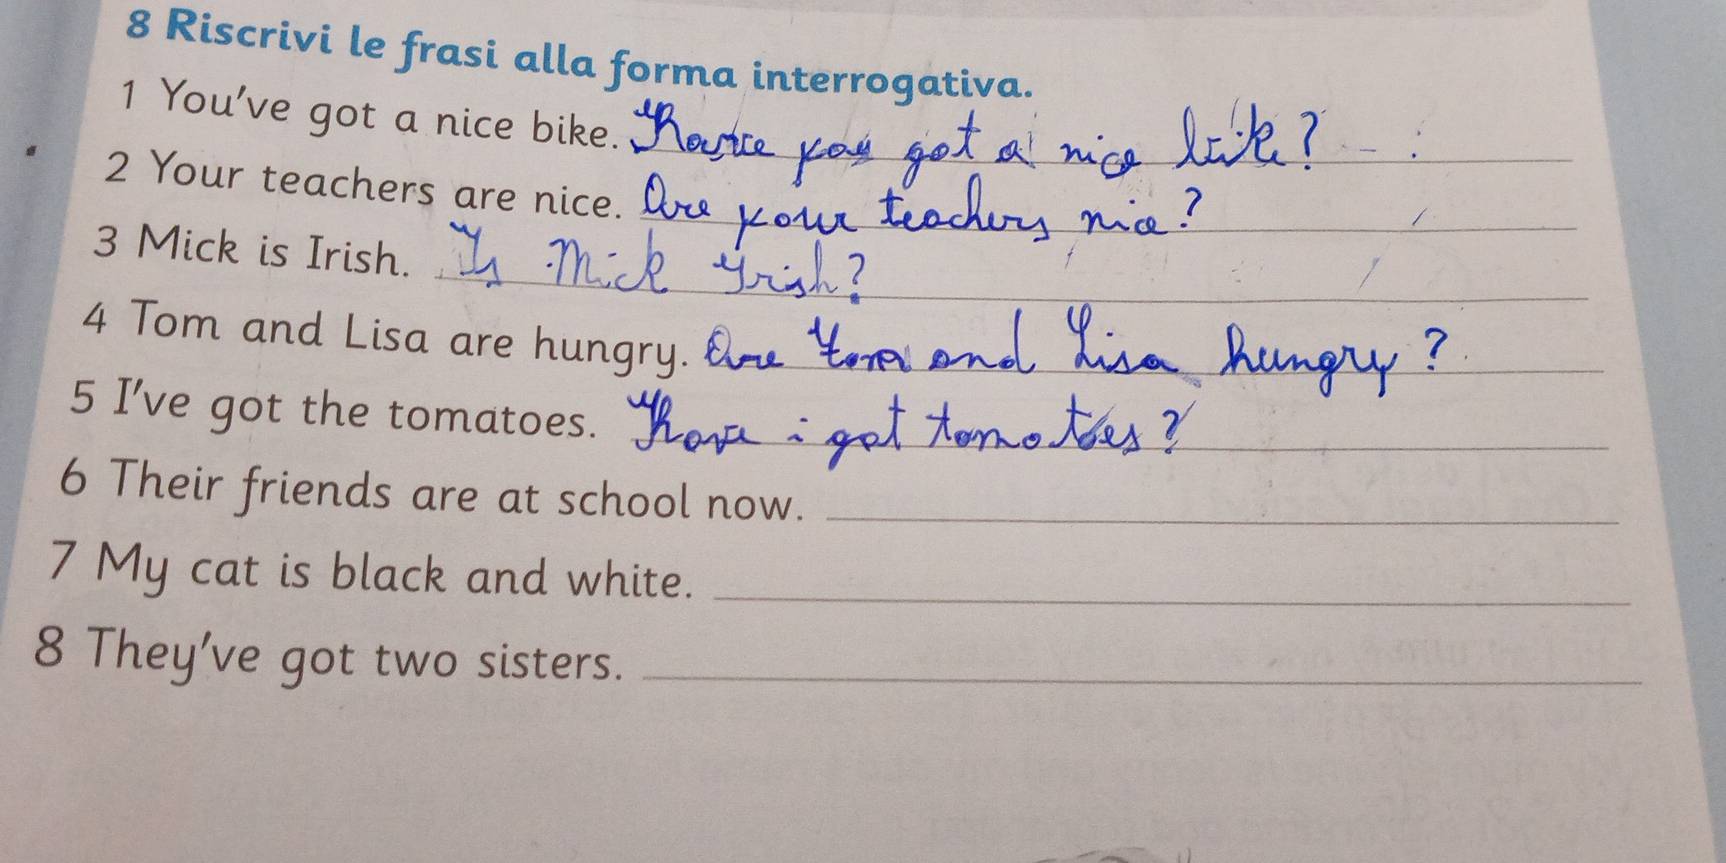 8 Riscrivi le frasi alla forma interrogativa.
1 You've got a nice bike. Have you got a nice bike?
2 Your teachers are nice. Are your teachers nice?
3 Mick is Irish. Is Mick Irish?
4 Tom and Lisa are hungry. Are Tom and Lisa hungry?
5 I've got the tomatoes. Have i got tomatoes?
6 Their friends are at school now.
7 My cat is black and white.
8 They've got two sisters.